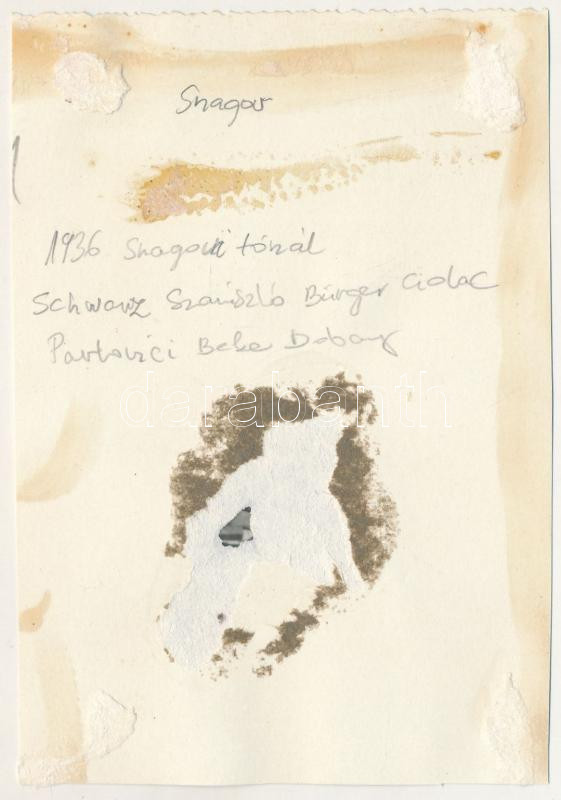 Snagov
1936 Snagovi tónál
Schwarz Szaniszló Bürger Ciolac
Pavlovici Beke Dobay
darabanth